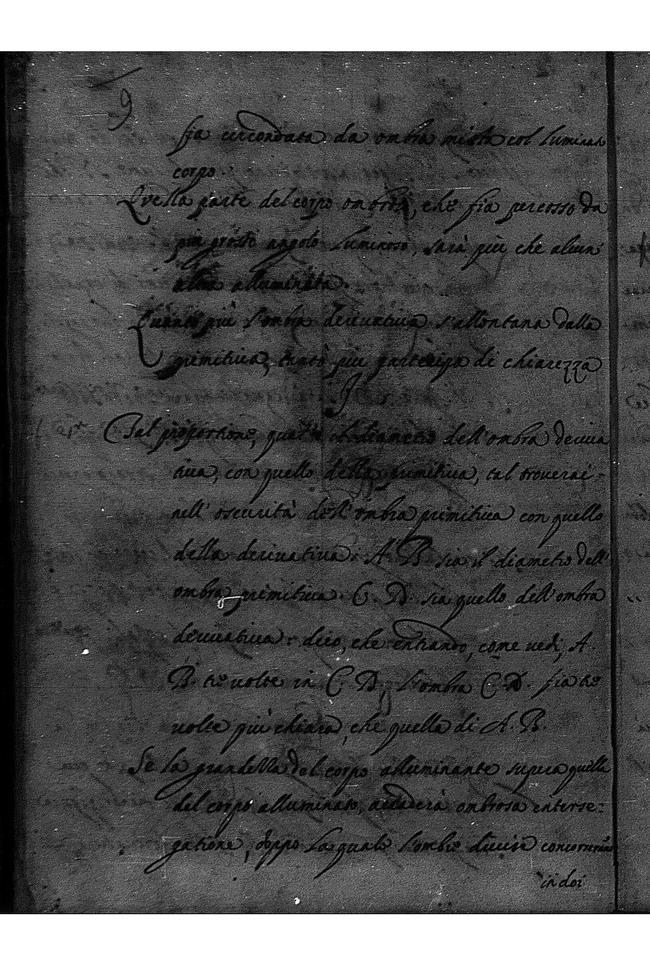 9
fia circondata da ombra mista col luminoso
corpo.
Quella parte del corpo ombroso, che fia percosso da
piu grosso angolo luminoso, sarà piu che alcun
altra alluminata.
Quanto più l'ombra derivativa s'allontana dalla
primitiva, tanto piu partecipa di chiarezza
Tal proportione, qual' il diametro dell'ombra deriva
tiva, con quello della primitiva, tal troverai
nell'oscurità dell'ombra primitiva con quello
della derivativa. A B sia il diametro dell'
ombra primitiva. C. D. sia quello dell'ombra
derivativa: dico, che entrando, come vedi, A.
B. tre volte in C. D., l'ombra C. D. fia tre
volte più chiara, che quella di A. B.
Se la grandezza del corpo alluminante supera quella
del corpo alluminato, accaderà ombrosa enterse=
gatione, doppo la quale l'ombre divise concorreranno
in doi